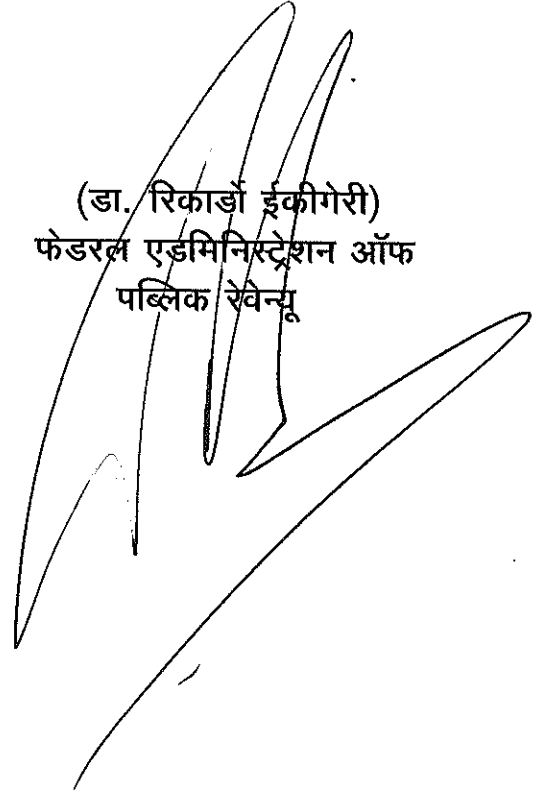 (डा. रिकार्डो ईकीगेरी)
फेडरल एडमिनिस्ट्रेशन ऑफ
पब्लिक रेवेन्यू